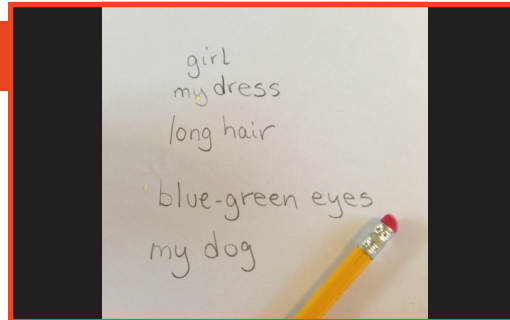 girl
my dress
long hair
blue-green eyes
my dog